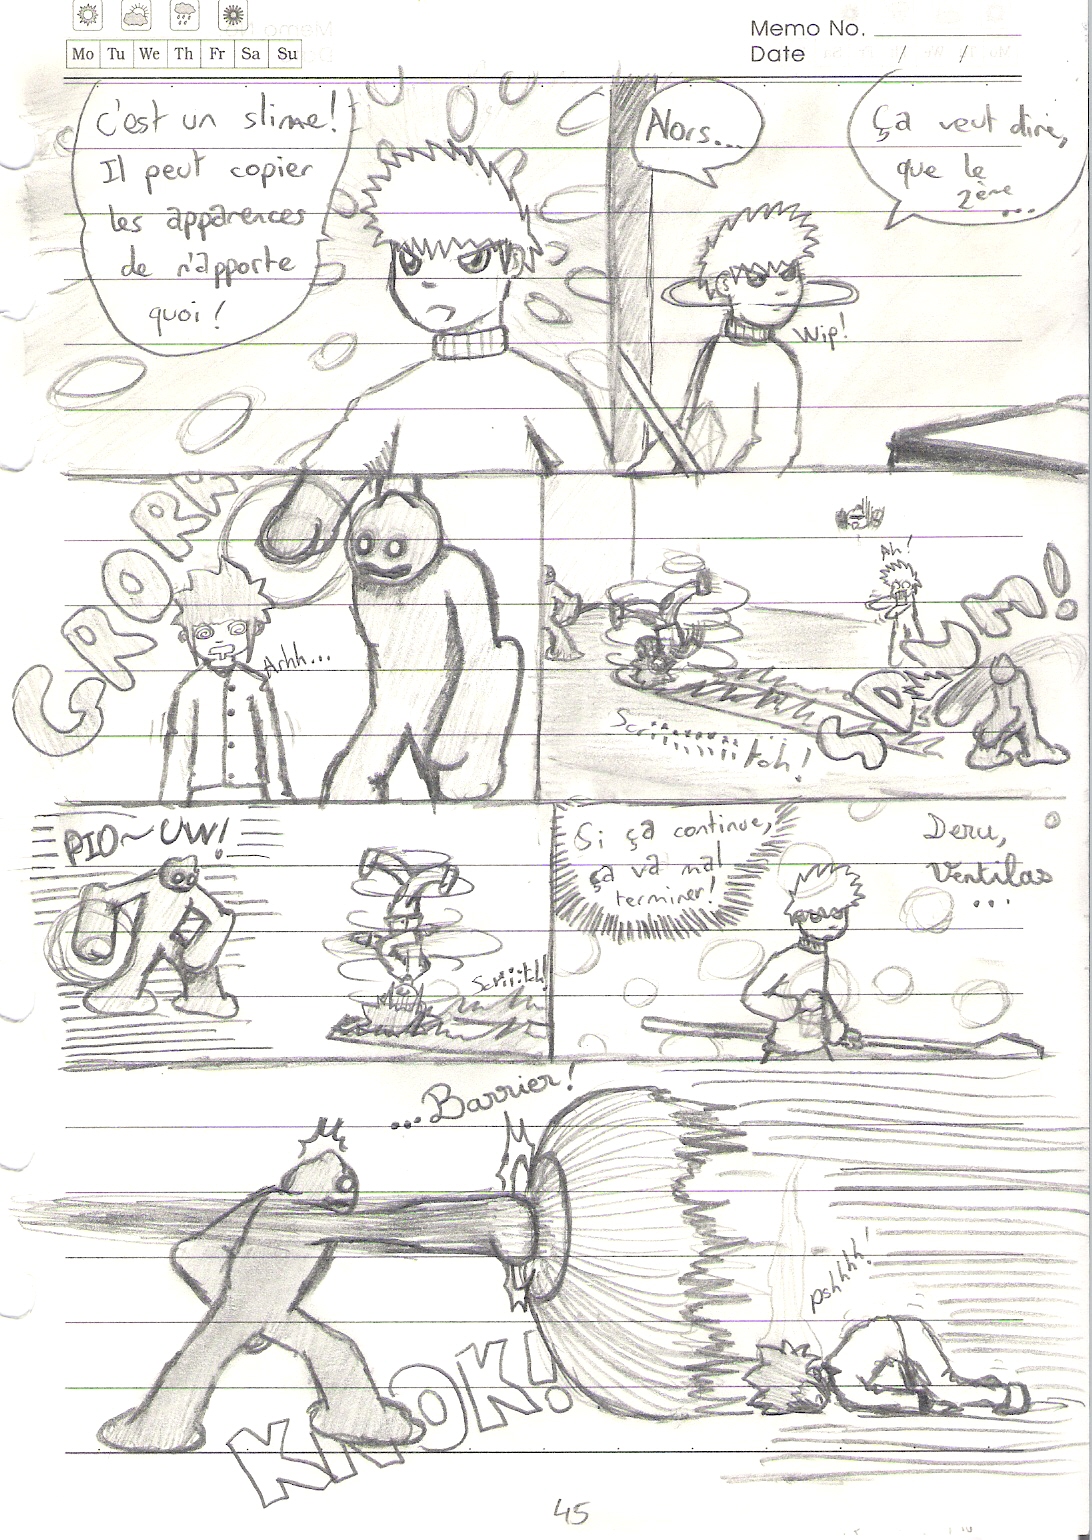 Memo No.
Mo Tu We Th Fr Sa Su
Date / /
C'est un slime!
Il peut copier
les apparences
de n'apporte
quoi!
Alors...
Ça veut dire,
que le
2ème...
Wip!
GRORH!
Arhh...
Ah!
SDAUM!
Scriiiiiiiitch!
PIO~UW!
Scriiitch!
Si ça continue,
ça va mal
terminer!
Deru,
Ventilas
...
...Barrier!
pshhhh!
KNOK!
45